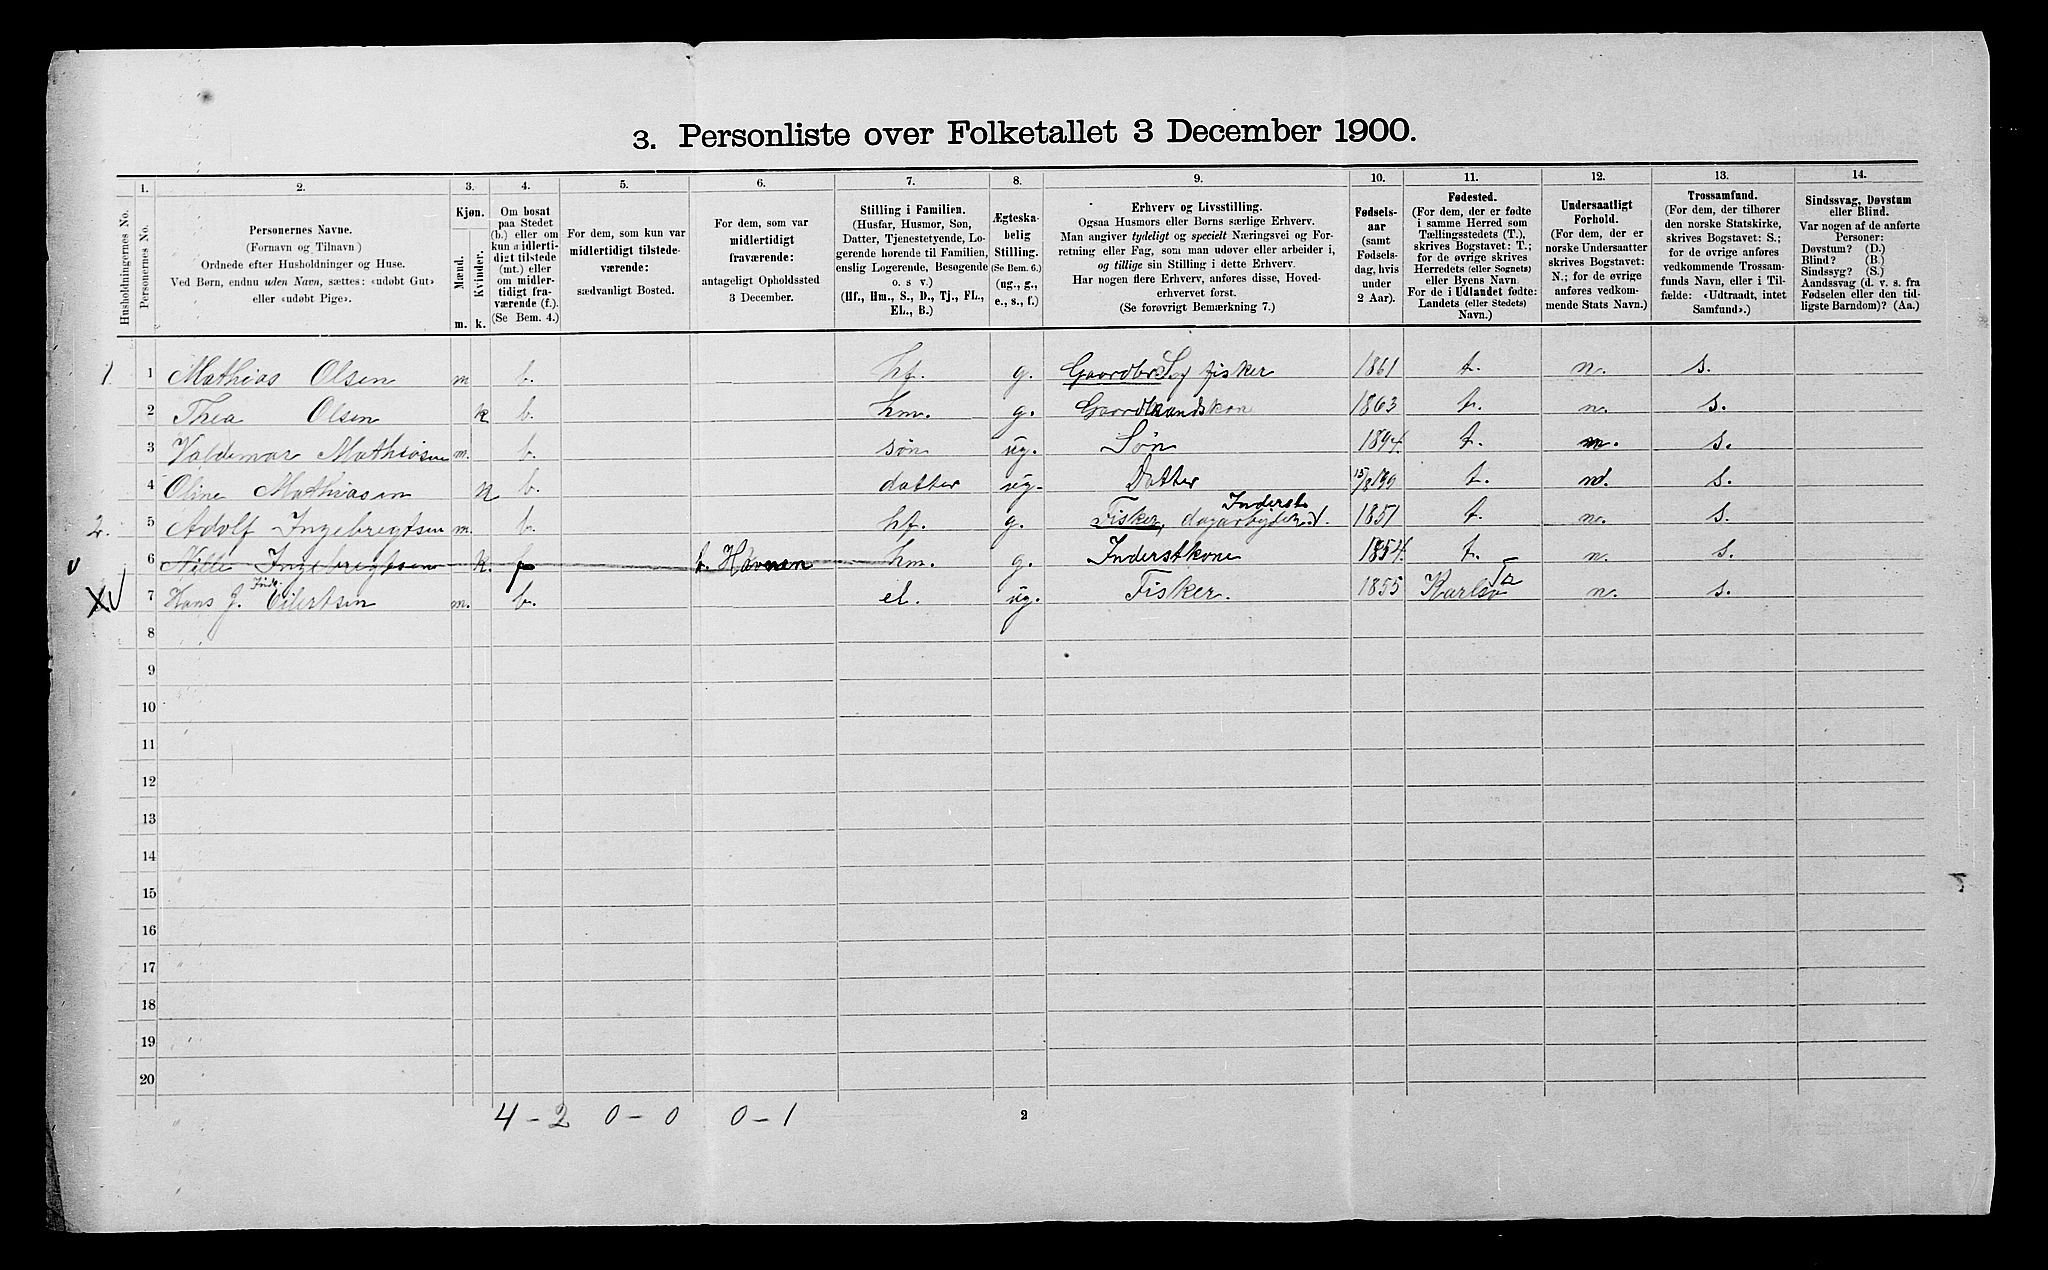 3. Personliste over Folketallet 3 December 1900.
Husholdningernes No.
1.
Personernes No.
2.
Personernes Navne.
(Fornavn og Tilnavn)
Ordnede efter Husholdninger og Huse.
Ved Børn, endnu uden Navn, sættes: «udøbt Gut»
eller «udøbt Pige».
3.
Kjøn.
Mænd.
Kvinder.
m. k.
4.
Om bosat
paa Stedet
(b.) eller om
kun midlerti-
digt tilstede
(mt.) eller
om midler-
tidigt fra-
værende (f.).
(Se Bem. 4.)
5.
For dem, som kun var
midlertidigt tilstede-
værende:
sædvanligt Bosted.
6.
For dem, som var
midlertidigt
fraværende:
antageligt Opholdssted
3 December.
7.
Stilling i Familien.
(Husfar, Husmor, Søn,
Datter, Tjenestetyende, Lo-
gerende hørende til Familien,
enslig Logerende, Besøgende
o. s v.)
(Hf., Hm., S., D., Tj., FL.,
EL., B.)
8.
Ægteska-
belig
Stilling.
(Se Bem. 6.)
(ug., g.,
e., s., f.)
9.
Erhverv og Livsstilling.
Ogsaa Husmors eller Børns særlige Erhverv.
Man angiver tydeligt og specielt Næringsvei og For-
retning eller Fag, som man udøver eller arbeider i,
og tillige sin Stilling i dette Erhverv.
Har nogen flere Erhverv, anføres disse, Hoved-
erhvervet først.
(Se forøvrigt Bemærkning 7.)
10.
Fødsels-
aar
(samt
Fødsels-
dag, hvis
under
2 Aar).
11.
Fødested.
(For dem, der er fødte
i samme Herred som
Tællingsstedets (T.),
skrives Bogstavet: T.;
for de øvrige skrives
Herredets (eller Sognets)
eller Byens Navn.
For de i Udlandet fødte:
Landets (eller Stedets)
Navn.)
12.
Undersaatligt
Forhold.
(For dem, der er
norske Undersaatter
skrives Bogstavet:
N.; for de øvrige
anføres vedkom-
mende Stats Navn.)
13.
Trossamfund.
(For dem, der tilhører
den norske Statskirke,
skrives Bogstavet: S.;
for de øvrige anføres
vedkommende Trossam-
funds Navn, eller i Til-
fælde: «Udtraadt, intet
Samfund».)
14.
Sindssvag, Døvstum
eller Blind.
Var nogen af de anførte
Personer:
Døvstum? (D.)
Blind? (B.)
Sindssyg? (S.)
Aandssvag (d. v. s. fra
Fødselen eller den tid-
ligste Barndom)? (Aa.)
1. 1 Mathias Olsen m. b. hf. g. Gaardbr Sf fisker 1861 t. n. s.
2 Thea Olsen k b. hm. g. Gaardmandskone 1863 t. n. s.
3 Valdemar Mathiasen m. b. søn ug. Søn 1894. t. n. s.
4 Oline Mathiasen k b. datter ug. Datter 15/8 99 t. n. s.
2. 5 Adolf Ingebrigtsen m. b. hf. g. Fisker, dagarbejder Inderst 1851 t. n. s.
v 6 Ingebrigtsen k. f t. Havnen hm. g. Inderstkone 1854. t. n. s.
XV 7 Hans J. Eilertsen m. b. el. ug. Fisker. 1855 Karlsø n. s.
8
9
10
11
12
13
14
15
16
17
18
19
20
4 - 2 0 - 0 0 - 1 2